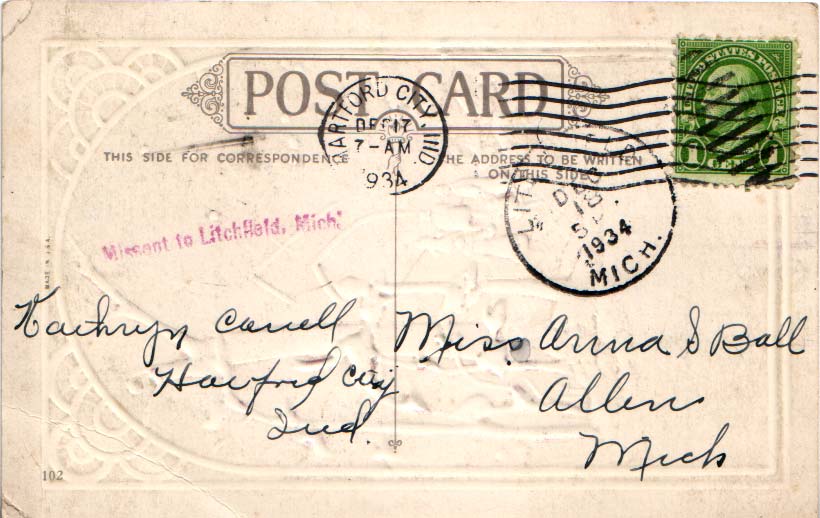 POST CARD
THIS SIDE FOR CORRESPONDENCE
THE ADDRESS TO BE WRITTEN
ON THIS SIDE
HARTFORD CITY, IND
DEC 17
7-AM
1934
UNITED STATES POSTAGE
1 CENT 1
DEC
18
1934
MICH.
Missent to Litchfield, Mich.
MADE IN U.S.A.
Kathryn Carrell
Harford City
Ind.
Miss Anna S Ball
Allen
Mich
102